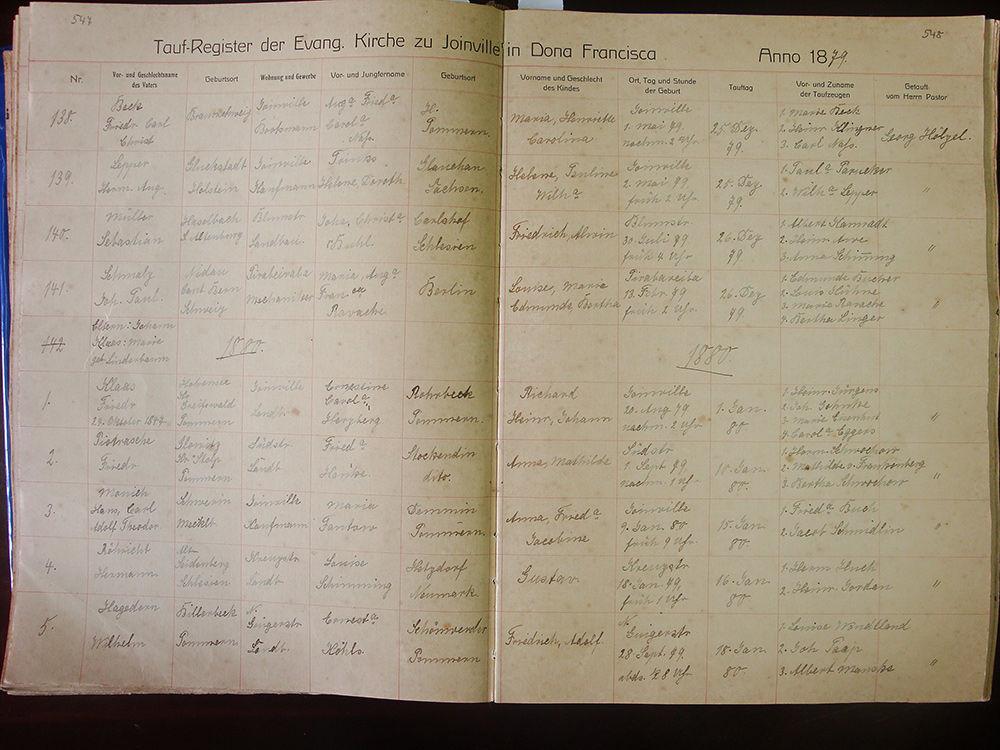 547
548
Tauf-Register der Evang. Kirche zu Joinville in Dona Francisca Anno 1879.
Nr.
Vor- und Geschlechtsname des Vaters
Geburtsort
Wohnung und Gewerbe
Vor- und Jungfername
Geburtsort
Vorname und Geschlecht des Kindes
Ort, Tag und Stunde der Geburt
Tauftag
Vor- und Zuname der Taufzeugen
Getauft vom Herrn Pastor
138.
Beck
Friedr. Carl
Christ
Braunschweig
Joinville
Aug a Fried a
Carol a
Nass.
Pommern.
Maria, Henriette
Carolina
Joinville
1. Mai 79
nachm. 2 Uhr
25. Dez
79.
1. Marie Beck
2. Heinr. Klingner
3. Carl Nass.
Georg Hölzel.
139.
Lepper
Herm. Aug.
Glückstadt
Holstein
Joinville
Kaufmann
Helene, Doroth
Glauchau
Sachsen.
Helene, Pauline
Wilh a
Joinville
2. Mai 79
früh 2 Uhr.
25. Dez
79
2. Wilh a Lepper
"
140.
Müller
Sebastian
Haselbach
S. Altenburg
Blumstr
Landbau.
Joha, Christ a
Carlshof
Schlesien
Friedrich, Alwin
Blumstr.
30. Juli 79.
früh 4 Uhr
26. Dez
79
1. Albert Kamradt
3. Anna Schimming
"
141.
Schmalz
Joh. Paul.
Nidau
Cant. Bern
Schweiz
Pirabeiraba
Mechaniker
Maria, Aug a
Ravache
Berlin
Louise, Maria
Edmunda, Bertha
13. Febr. 79
früh 2 Uhr.
26. Dez
79
2. Louis Kühne
3. Maria Ravache
4. Bertha Linger
"
142
Eltern: Johann
Klaas: Marie
geb Linderbaum
1880.
1880.
1.
Klaas
Friedr
29. Oktober 1847
Greifswald
Pommern
Joinville
Landb.
Ernestine
Carol a,
Herzberg
Rohrbeck
Pommern.
Richard
Heinr, Johann
Joinville
20. Aug 79
nachm. 2 Uhr
1. Jan.
80
1. Heinr. Jürgens
4. Carol a Eggers
"
2.
Friedr
Kr. Stolp
Pommern
Südstr
Landb
Fried a
dito.
Anna, Mathilde
Südstr
1. Sept. 79
nachm. 1 Uhr
10. Jan
80.
2. Mathilde v. Frankenberg
3. Bertha Schwochow
"
3.
Monich
Hans, Carl
Adolf Theodor.
Schwerin
Meckl.
Joinville
Kaufmann
Maria
Pantow
Demmin
Pommern.
Anna, Fried a
Jacobine
Joinville
9. Jan. 80
früh 9 Uhr.
15. Jan
80.
1. Fried a Buch
2. Jacob Schmidlin
"
4.
Röhricht
Hermann
Alt
Seidenberg
Schlesien
Kreuzstr
Landb
Louise
Schimming
Hatzdorf
Neumark
Gustav
Kreuzstr
18. Jan. 79
früh 1 Uhr
16. Jan
80
1. Herm Huch
2. Heinr. Jordan
"
5.
Hagedorn
Wilhelm
Billerbeck
Pommern
N.
Landb.
Ernest a
Köhls
Pommern
Friedrich, Adolf
N.
28. Sept. 79.
abds. 1/2 8 Uhr
18. Jan
80.
1. Louise Wendland
2. Joh Paap
3. Albert Manske
"